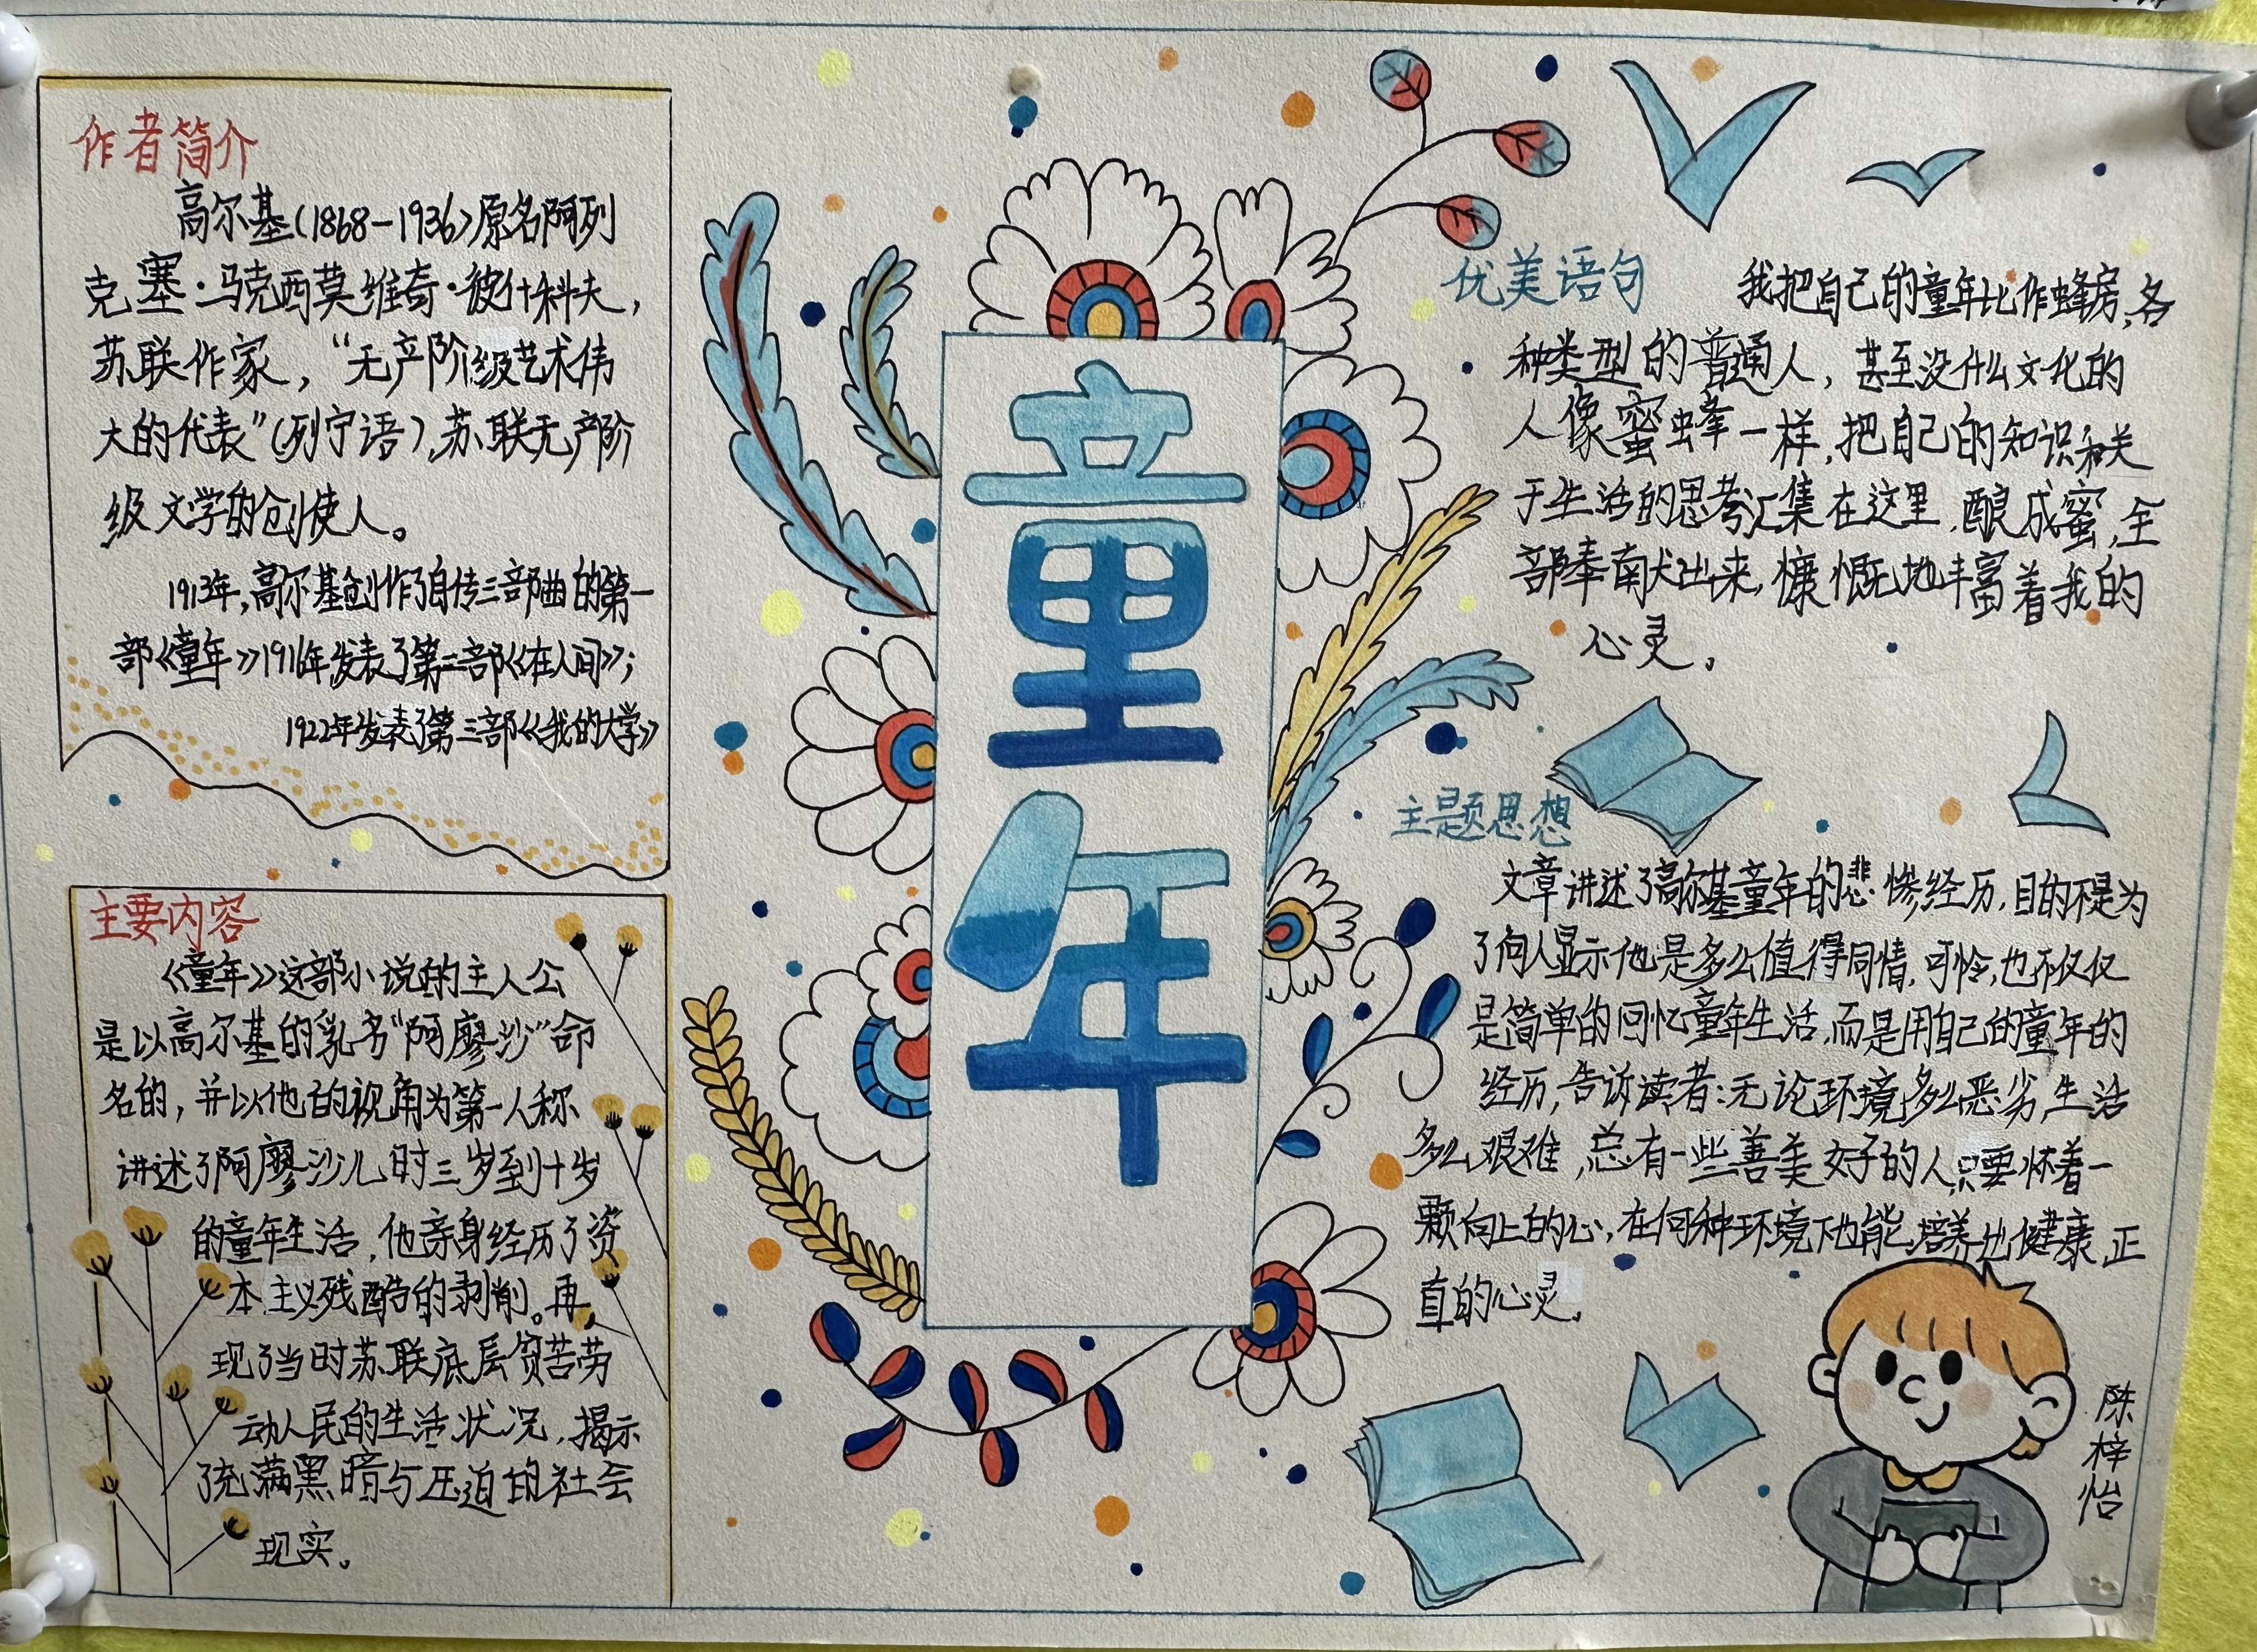 作者简介
高尔基(1868-1936)原名阿列
克塞·马克西莫维奇·彼什科夫,
苏联作家,“无产阶级艺术伟
大的代表”(列宁语),苏联无产阶
级文学的创使人。
1913年,高尔基创作了自传三部曲的第一
部《童年》1916年发表了第二部《在人间》;
1922年发表了第三部《我的大学》
主要内容
《童年》这部小说的主人公
是以高尔基的乳名“阿廖沙”命
名的,并以他的视角为第一人称
讲述了阿廖沙儿时三岁到十岁
的童年生活,他亲身经历了资
本主义残酷的剥削。再
现了当时苏联底层贫苦劳
动人民的生活状况,揭示
了充满黑暗与压迫的社会
现实。
童年
优美语句
我把自己的童年比作蜂房,各
种类型的普通人,甚至没什么文化的
人像蜜蜂一样,把自己的知识和关
于生活的思考汇集在这里,酿成蜜,全
部奉献出来,慷慨地丰富着我的
心灵。
主题思想
文章讲述了高尔基童年的悲惨经历,目的不是为
了向人显示他是多么值得同情,可怜,也不仅仅
是简单的回忆童年生活,而是用自己的童年的
经历,告诉读者:无论环境多么恶劣生活
多么艰难,总有一些善美好的人只要怀着一
颗向上的心,在何种环境下也能培养出健康,正
直的心灵。
陈梓怡